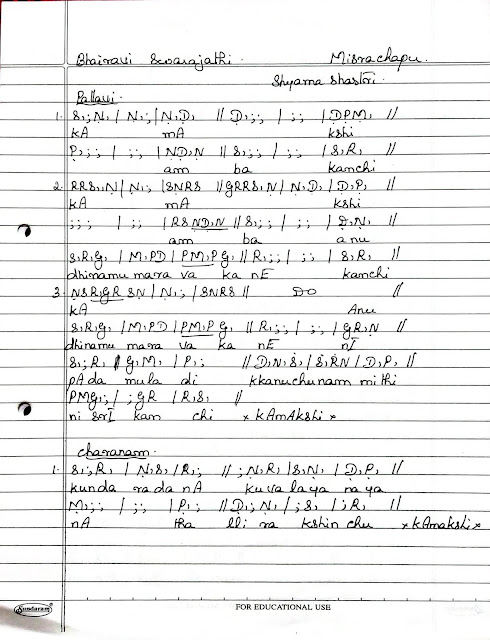 Bhairavi Swarajathi. Misrachapu.
Shyama Shastri.
Pallavi.
1. S,;N, / N,;/N,D, // D,;; / ;; /DPM, //
kA mA kshi
P,;; / ;; /NDN // S,;; / ;; /S,R, //
am ba kanchi
2. RRS,,N/ N,; /SNRS //GRRS,N/ N,D, / D,P, //
kA mA kshi
;;; / ;; /RSNDN // S,;; / ;; / D,N, //
am ba anu
S,R,G, / M,PD / PM,PG, // R,;; / ;; / S,R, //
dhinamu mara va ka nE kanchi
3. NSRGR SN / N,; / SNRS // DO //
kA Anu
S,R,G, /M,PD / PM,PG, // R,;; / ;; /GR,N //
dhinamu mara va ka nE nI
S,;R, / G,M, / P,; // D,N,S, / S,RN / D,P, //
pAda mula di kkanuchunam mithi
PMG,; / ;GR /R,S, //
ni sorI kan chi x kAmAkshi x
charanam.
1. S,;R, / N,S, /R,; // ;N,R, /S,N, / D,P, //
kunda rada nA kuvalaya naya
M,;; / ;; /P,; // D,;N, / ;S, / ;R, //
nA tha lli ra kshin chu x kAmakshi x
Sundaram
FOR EDUCATIONAL USE